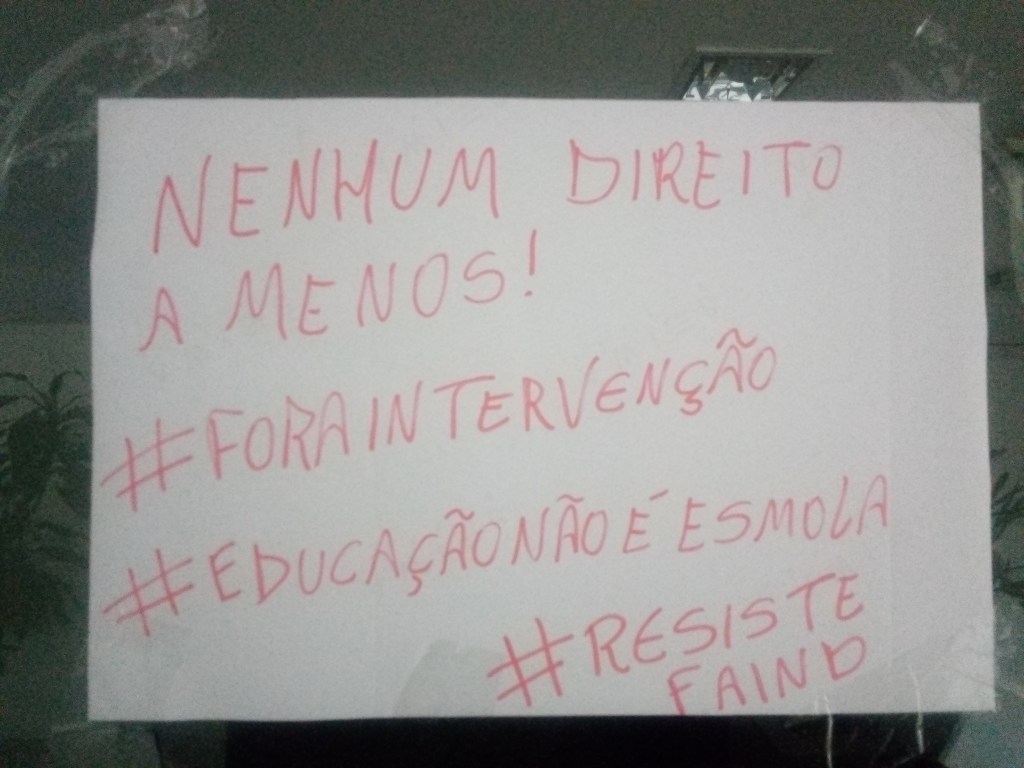 NENHUM DIREITO
A MENOS!
#FORAINTERVENÇÃO
#EDUCAÇÃONÃOÉESMOLA
#RESISTE
FAIND